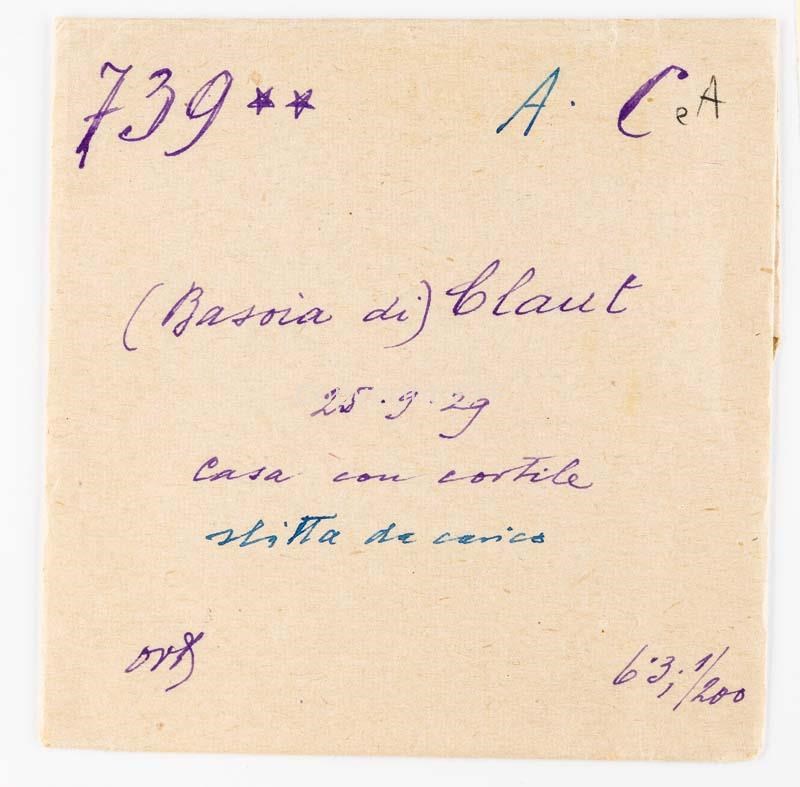 739** A. C e A
(Basoia di) Claut
25.9.29
Casa con cortile
slitta da carico
6.3; 1/200